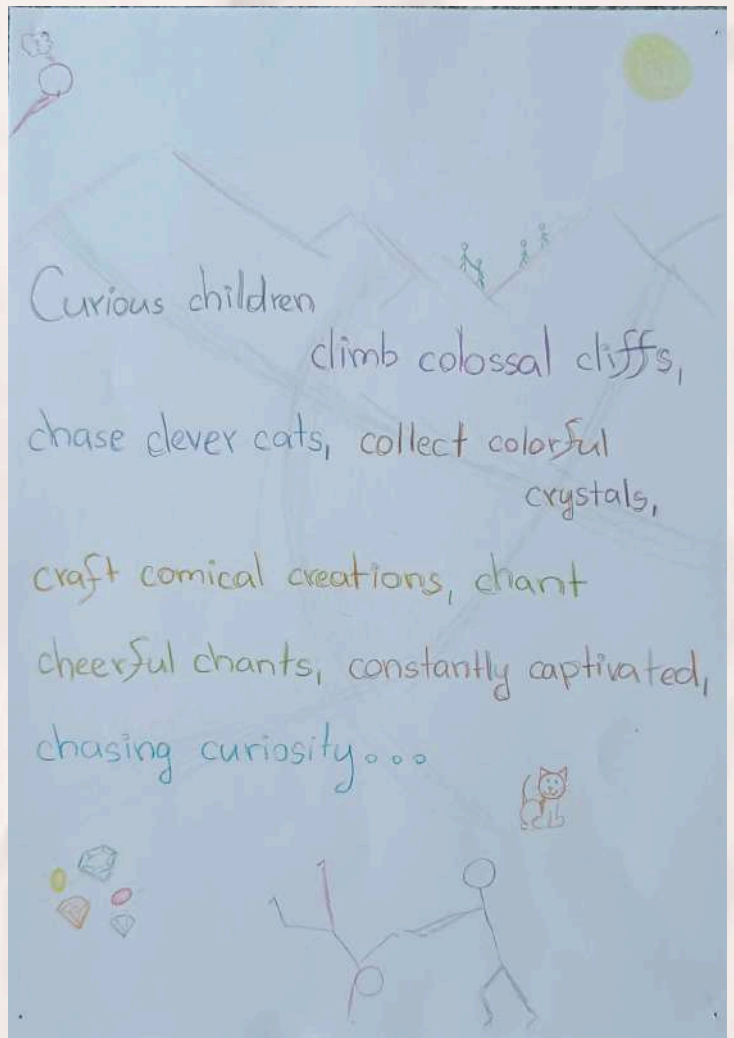 Curious children
climb colossal cliffs,
chase clever cats, collect colorful
crystals,
craft comical creations, chant
cheerful chants, constantly captivated,
chasing curiosity...